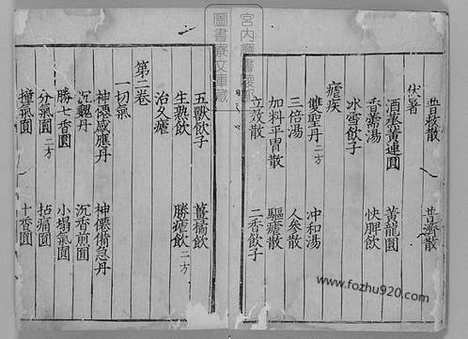 普救散
普濟散
伏暑
酒蒸黃連圓
黃龍圓
香薷湯
快脾飲
水雪飲子
瘧疾
雙聖丹二方
冲和湯
三倍湯
人參散
加料平胃散
驅瘧散
立效散
二香飲子
五獸飲子
薑橘飲
生熟飲
勝瘧飲二方
治久瘧
第二卷
一切氣
神僊感應丹
神僊備急丹
沉麝丹
沉香煎圓
勝七香圓
小塌氣圓
分氣圓二方
拈痛圓
撞氣圓
十香圓
www.fozhu920.com